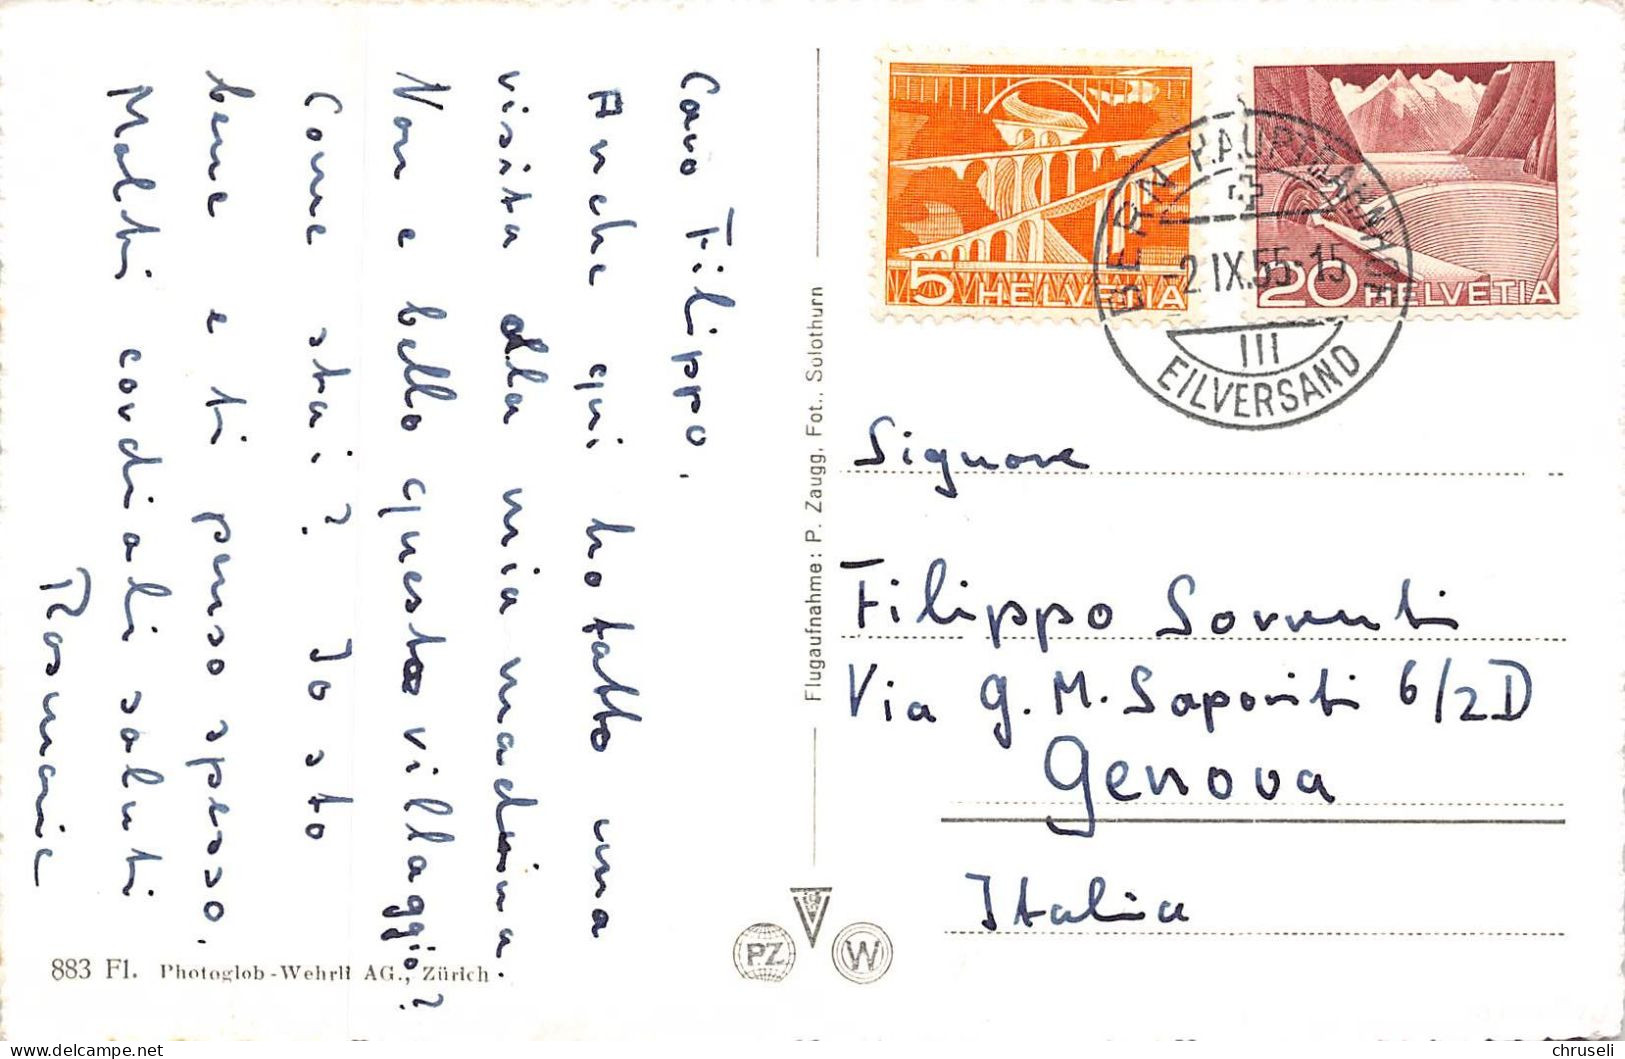 Caro Filippo.
Anche qui ho fatto una
visita dla mia madrina.
Non e bello questo villaggio?
Come stai? Io sto
bene e ti penso spesso.
Molti cordiali saluti
Rosmarie
883 Fl. Photoglob-Wehrli AG., Zürich
Flugaufnahme: P. Zaugg. Fot., Solothurn
PZ
W
5 HELVETIA
20 HELVETIA
BERN HAUPTBAHNHOF
-2.IX.55-15
III
EILVERSAND
Signore
Filippo Sorrenti
Via G. M. Saporiti 6/2D
Genova
Italia
chruseli